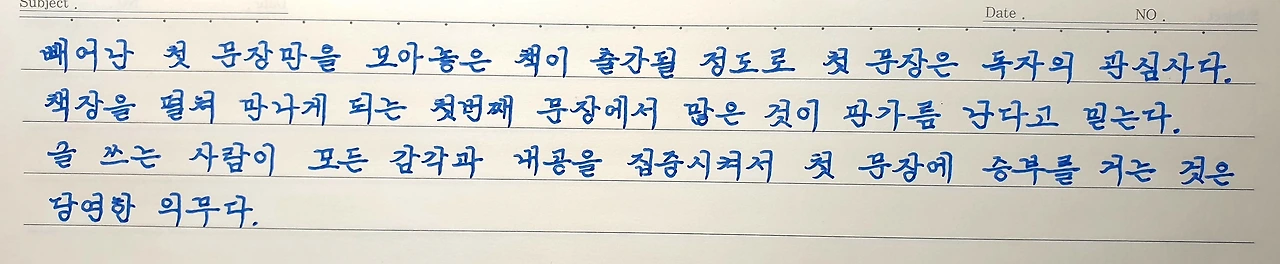 Subject .
Date .
NO .
빼어난 첫 문장만을 모아놓은 책이 출간될 정도로 첫 문장은 독자의 관심사다.
책장을 펼쳐 만나게 되는 첫번째 문장에서 많은 것이 판가름 난다고 믿는다.
글 쓰는 사람이 모든 감각과 내공을 집중시켜서 첫 문장에 승부를 거는 것은
당연한 의무다.